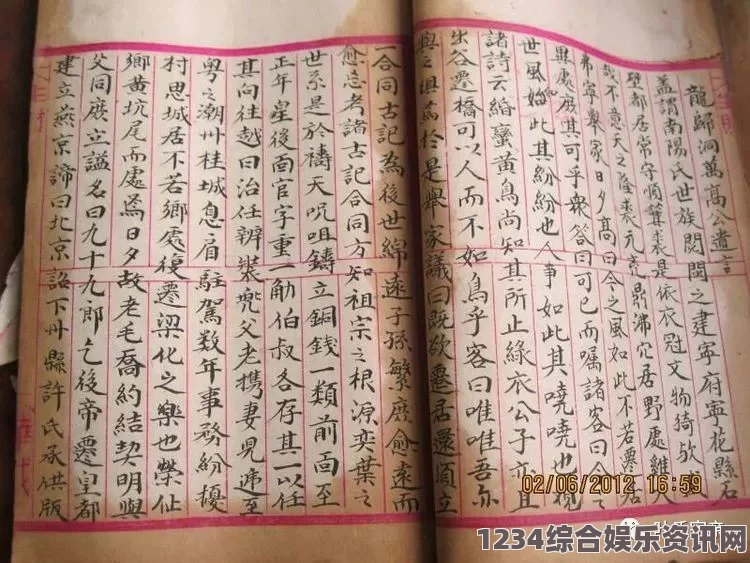 龍歸洞萬高公遺言
蓋謂南陽氏世族閥閱之建寧府寧花縣石
壁都居常守順箕裘是依衣冠文物猗歟
哉不意天之隆裘元虎鼎沸穴居野處雞犬
弗寧舉家日夕高曰今之風如此不若遷居
異處庶其可乎衆答曰可已而囑諸客曰今之
世風始此其紛紛也人事如此其嘵嘵也視
諸詩云緡蠻黃鳥尚知其所止緣衣公子亦且
出谷遷橋可以人而不如鳥乎客曰唯唯吾亦
與之俱焉於是舉家議曰既欲遷居還須立
一合同古記為後世綿遠子孫繁庶愈遠而
愈忘考諸古記合同方知祖宗之根源奕葉之
世系是於禱天呪咀鑄立銅錢一類前面至
正年皇後面官字重一觔伯叔各存其一以任
其向往越曰治任辨裝兜父老攜妻兒遞至
粵之潮州桂城息肩駐駕数年事務紛擾
村思城居不若鄉處復遷梁化之樂也榮仙
鄉黃坑尾而處焉日夕故老毛喬約結契明與
父同庶立謚名曰九十九郎乞後帝遷皇都
建立燕京諦曰北京詔下州縣許氏承供版
02/06/2012 16:59
1234综合娱乐资讯网